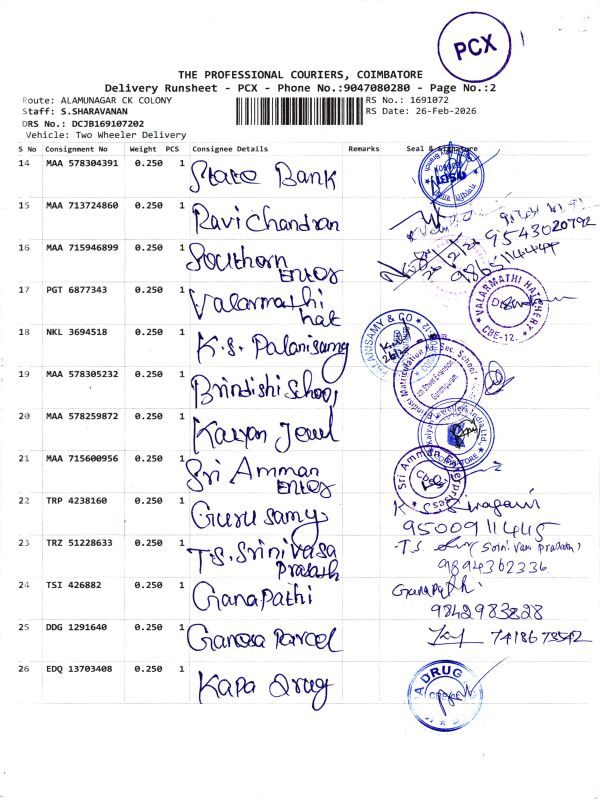 PCX
THE PROFESSIONAL COURIERS, COIMBATORE
Delivery Runsheet - PCX - Phone No.:9047080280 - Page No.:2
Route: ALAMUNAGAR CK COLONY
RS No.: 1691072
Staff: S.SHARAVANAN
RS Date: 26-Feb-2026
DRS No.: DCJB169107202
Vehicle: Two Wheeler Delivery
S No Consignment No Weight PCS Consignee Details Remarks Seal & Signature
14 MAA 578304391 0.250 1 State Bank
15 MAA 713724860 0.250 1 Ravi Chandran
9543020792
16 MAA 715946899 0.250 1 Southern Entos
17 PGT 6877343 0.250 1 Valarmathi hat VALARMATHI HATCHERY CBE-12.
18 NKL 3694518 0.250 1 K.S. Palanisamy PALANISAMY & CO
19 MAA 578305232 0.250 1 Brindishi School Matriculation Hr. Sec. School
20 MAA 578259872 0.250 1 Kalyan Jewl
21 MAA 715600956 0.250 1 Sri Amman Entos Sri Amman Enterprises
22 TRP 4238160 0.250 1 Guru samy
9500911445
23 TRZ 51228633 0.250 1 T.S. Srinivasa Prakash T.S.
9894362336
24 TSI 426882 0.250 1 Ganapathi Ganapathi
9842983828
25 DDG 1291640 0.250 1 Ganesa Parcel
26 EDQ 13703408 0.250 1 Kapa Drug A DRUG